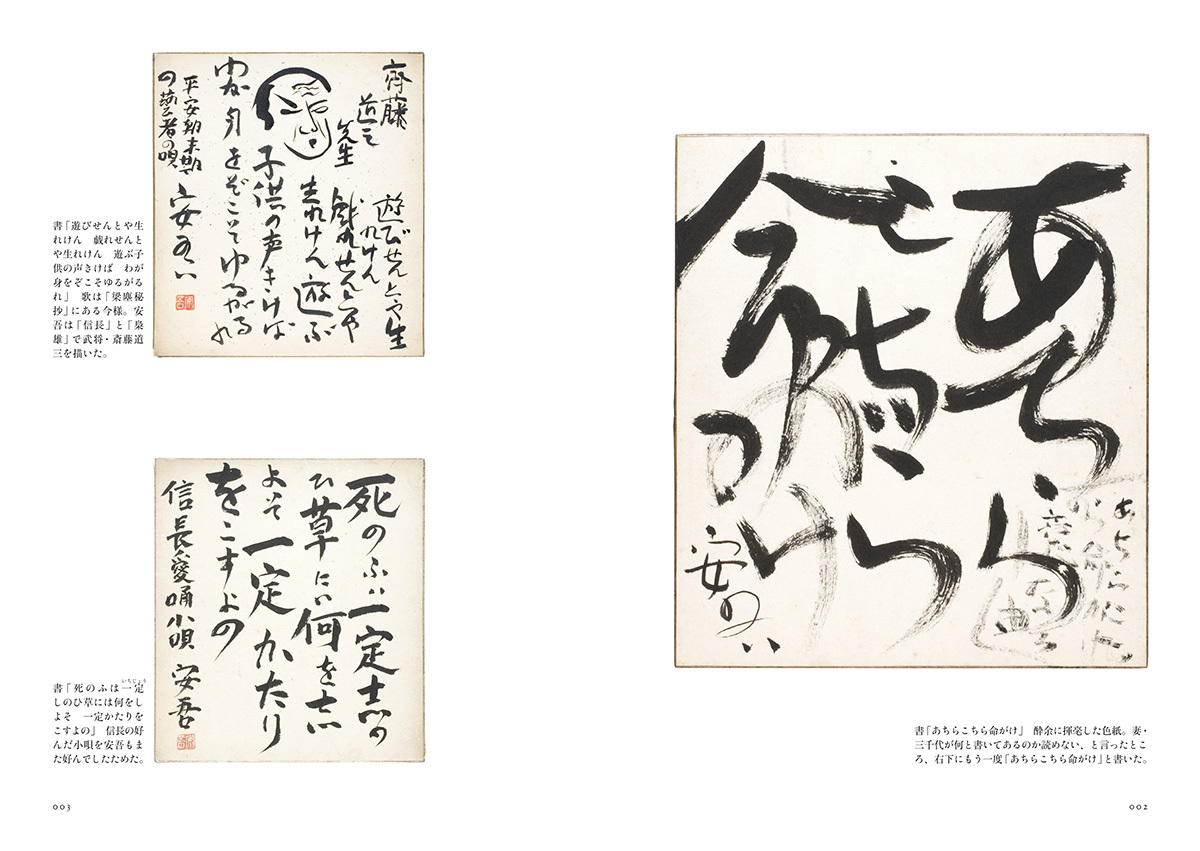 あちらこちら
命がけ
安吾
書「あちらこちら命がけ」　酔余に揮毫した色紙。妻・
三千代が何と書いてあるのか読めない、と言ったとこ
ろ、右下にもう一度「あちらこちら命がけ」と書いた。
002
斉藤
道三
先生
遊びせんとや生
れけん
戯れせんとや
生れけん 遊ぶ
子供の声きけば
わが身をぞこそゆるがる
れ
平安朝末期
の芸者の唄
安吾
書「遊びせんとや生
れけん　戯れせんと
や生れけん　遊ぶ子
供の声きけば　わが
身をぞこそゆるがる
れ」　歌は「梁塵秘
抄」にある今様。安
吾は「信長」と「梟
雄」で武将・斎藤道
三を描いた。
死のふは一定志の
ひ草には何を志
よそ一定かたり
をこすよの
信長愛 小唄 安吾
書「死のふは一定
いちじょう
しのひ草には何をし
よそ　一定かたりを
こすよの」　信長の好
んだ小唄を安吾もま
た好んでしたためた。
003